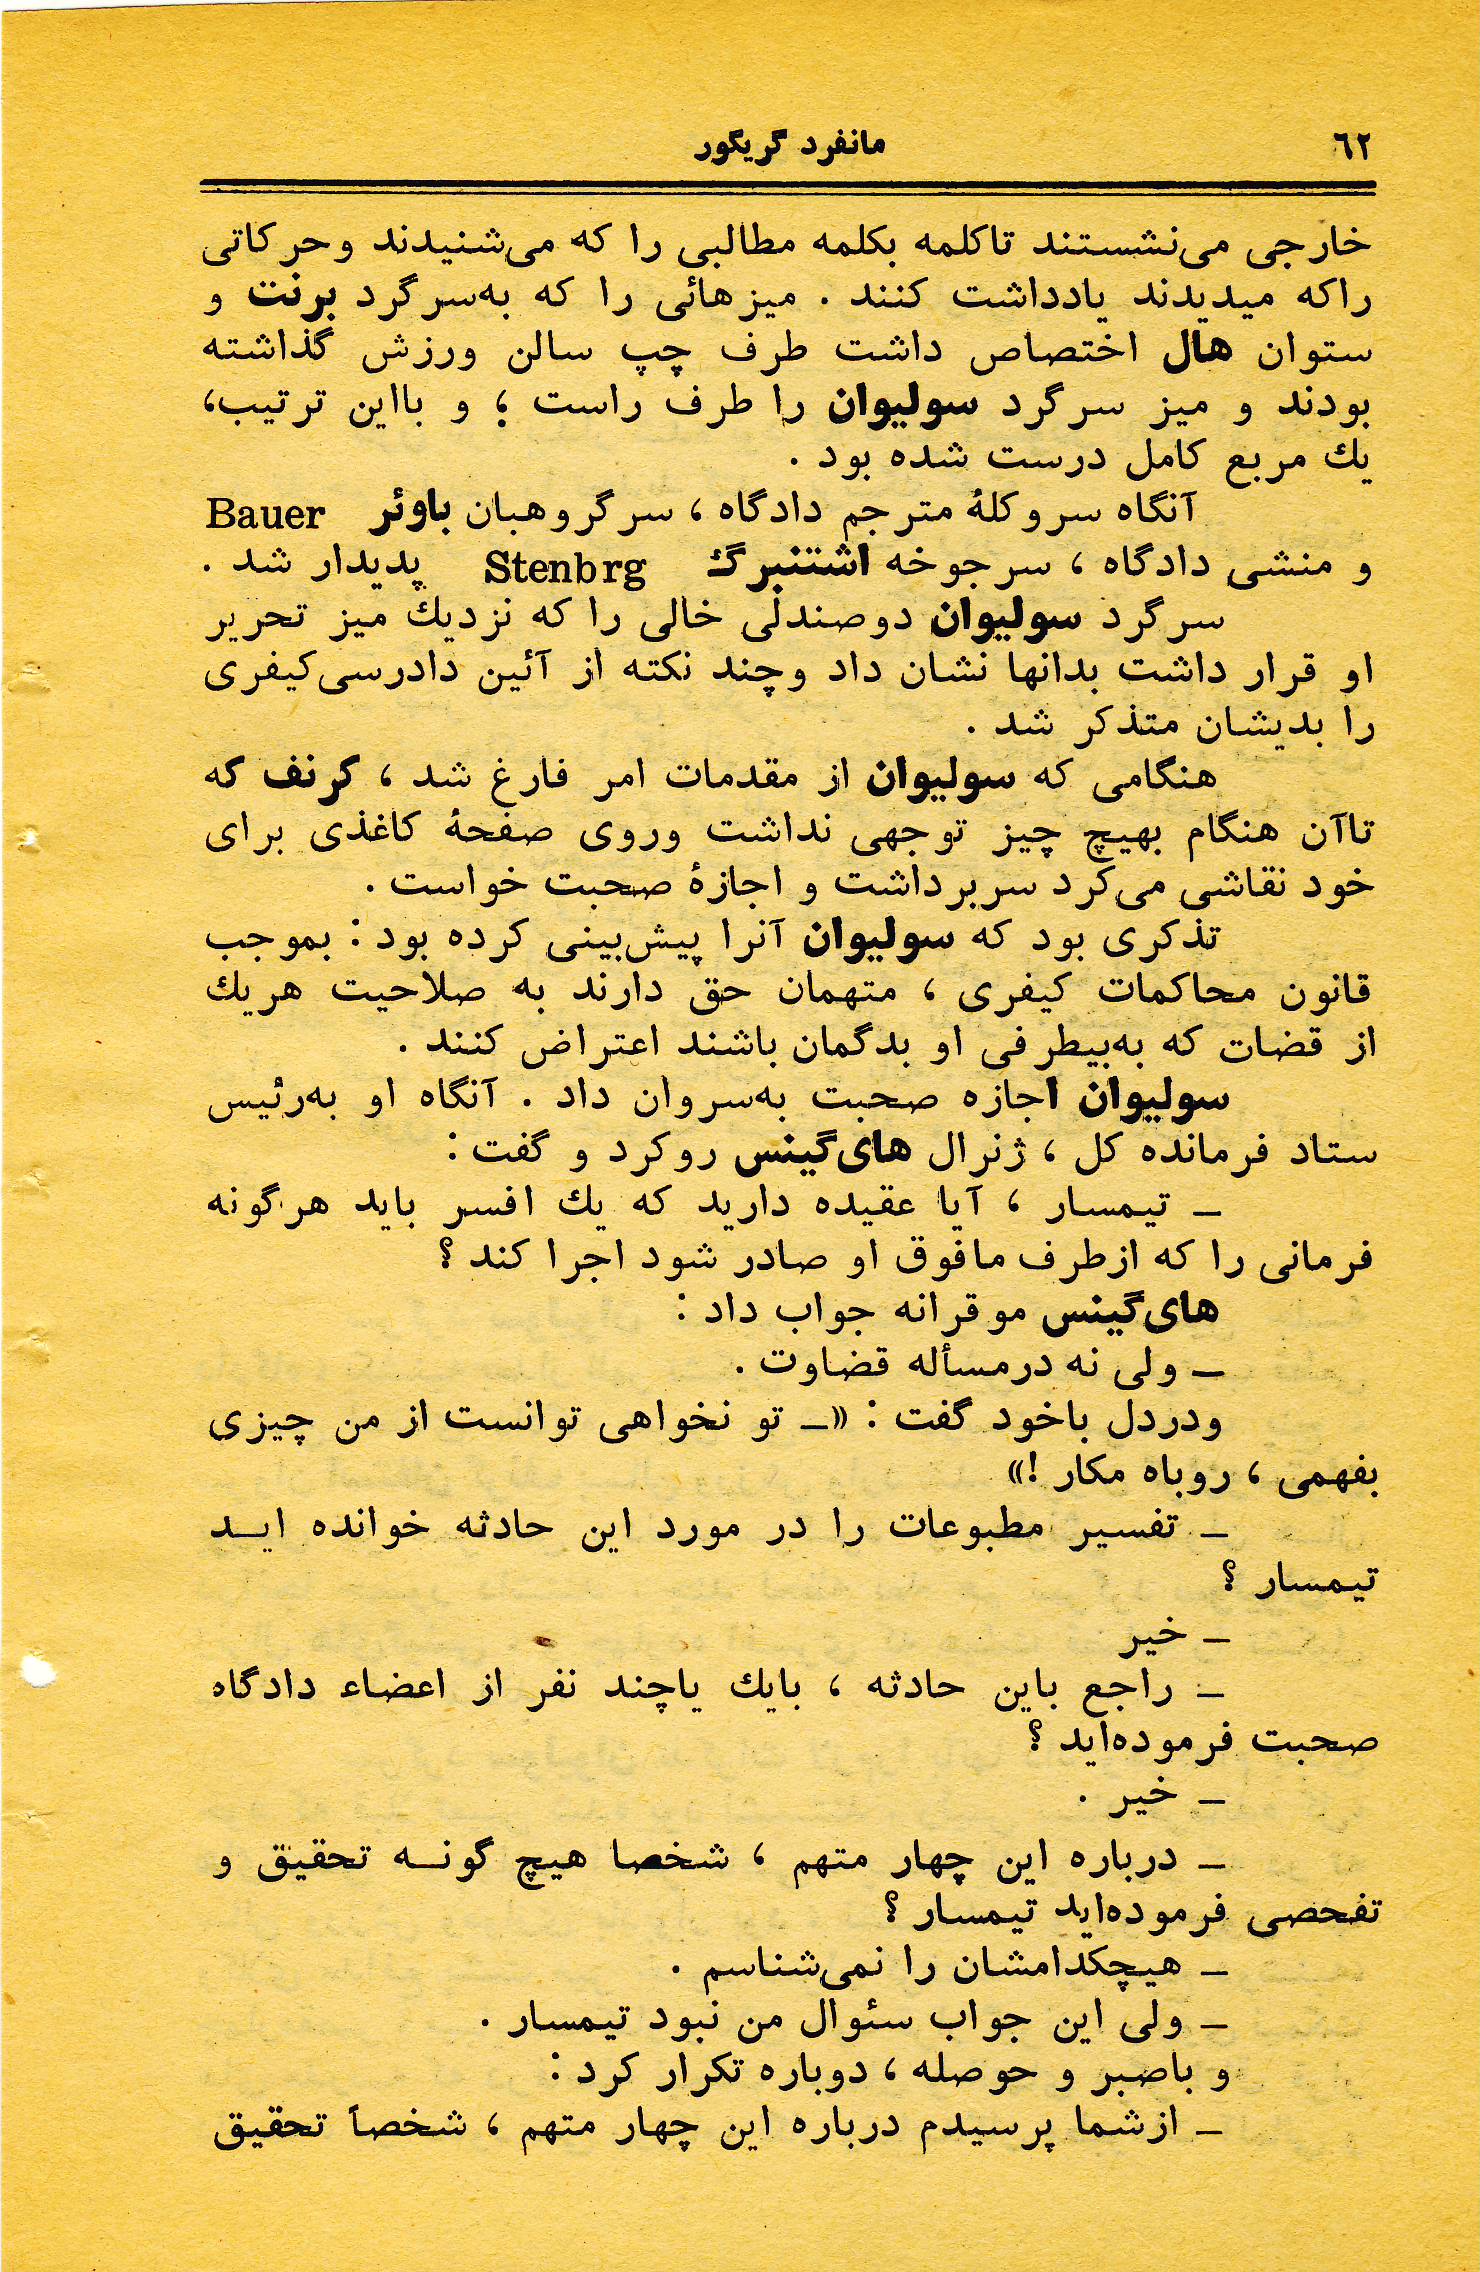 ٦٢
مانفرد گریگور
خارجی می‌نشستند تاکلمه بکلمه مطالبی را که می‌شنیدند وحرکاتی
راکه میدیدند یادداشت کنند . میزهائی را که به‌سرگرد برنت و
ستوان هال اختصاص داشت طرف چپ سالن ورزش گذاشته
بودند و میز سرگرد سولیوان را طرف راست ؛ و بااین ترتیب،
یك مربع کامل درست شده بود .
آنگاه سروکلهٔ مترجم دادگاه ، سرگروهبان باوئر Bauer
و منشی دادگاه ، سرجوخه اشتنبرگ Stenbrg پدیدار شد .
سرگرد سولیوان دوصندلی خالی را که نزدیك میز تحریر
او قرار داشت بدانها نشان داد وچند نکته از آئین دادرسی‌کیفری
را بدیشان متذکر شد .
هنگامی که سولیوان از مقدمات امر فارغ شد ، کرنف که
تاآن هنگام بهیچ چیز توجهی نداشت وروی صفحهٔ کاغذی برای
خود نقاشی می‌کرد سربرداشت و اجازهٔ صحبت خواست .
تذکری بود که سولیوان آنرا پیش‌بینی کرده بود : بموجب
قانون محاکمات کیفری ، متهمان حق دارند به صلاحیت هریك
از قضات که به‌بیطرفی او بدگمان باشند اعتراض کنند .
سولیوان اجازه صحبت به‌سروان داد . آنگاه او به‌رئیس
ستاد فرمانده کل ، ژنرال های‌گینس روکرد و گفت :
ــ تیمسار ، آیا عقیده دارید که یك افسر باید هرگونه
فرمانی را که ازطرف مافوق او صادر شود اجرا کند ؟
های‌گینس موقرانه جواب داد :
ــ ولی نه درمسأله قضاوت .
ودردل باخود گفت : «ــ تو نخواهی توانست از من چیزی
بفهمی ، روباه مکار !»
ــ تفسیر مطبوعات را در مورد این حادثه خوانده ایـد
تیمسار ؟
ــ خیر
ــ راجع باین حادثه ، بایك یاچند نفر از اعضاء دادگاه
صحبت فرموده‌اید ؟
ــ خیر .
ــ درباره این چهار متهم ، شخصا هیچ گونـه تحقیق و
تفحصی فرموده‌اید تیمسار ؟
ــ هیچکدامشان را نمی‌شناسم .
ــ ولی این جواب سئوال من نبود تیمسار .
و باصبر و حوصله ، دوباره تکرار کرد :
ــ ازشما پرسیدم درباره این چهار متهم ، شخصاً تحقیق